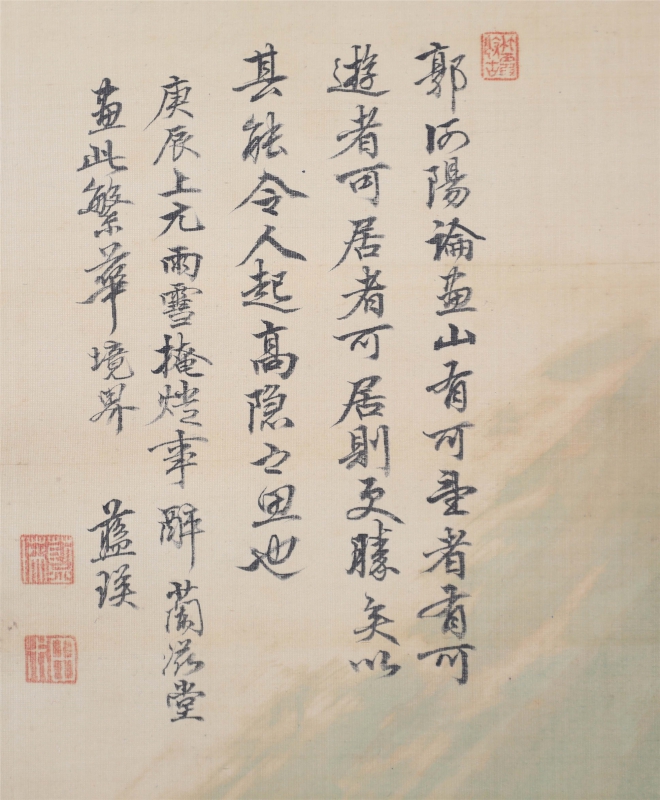 郭河陽論畫山有可望者有可
遊者可居者可居則更勝矣以
其能令人起高隐之思也
庚辰上元雨雪掩燈事醉蘭滋堂
畫此繁華境界 藍瑛